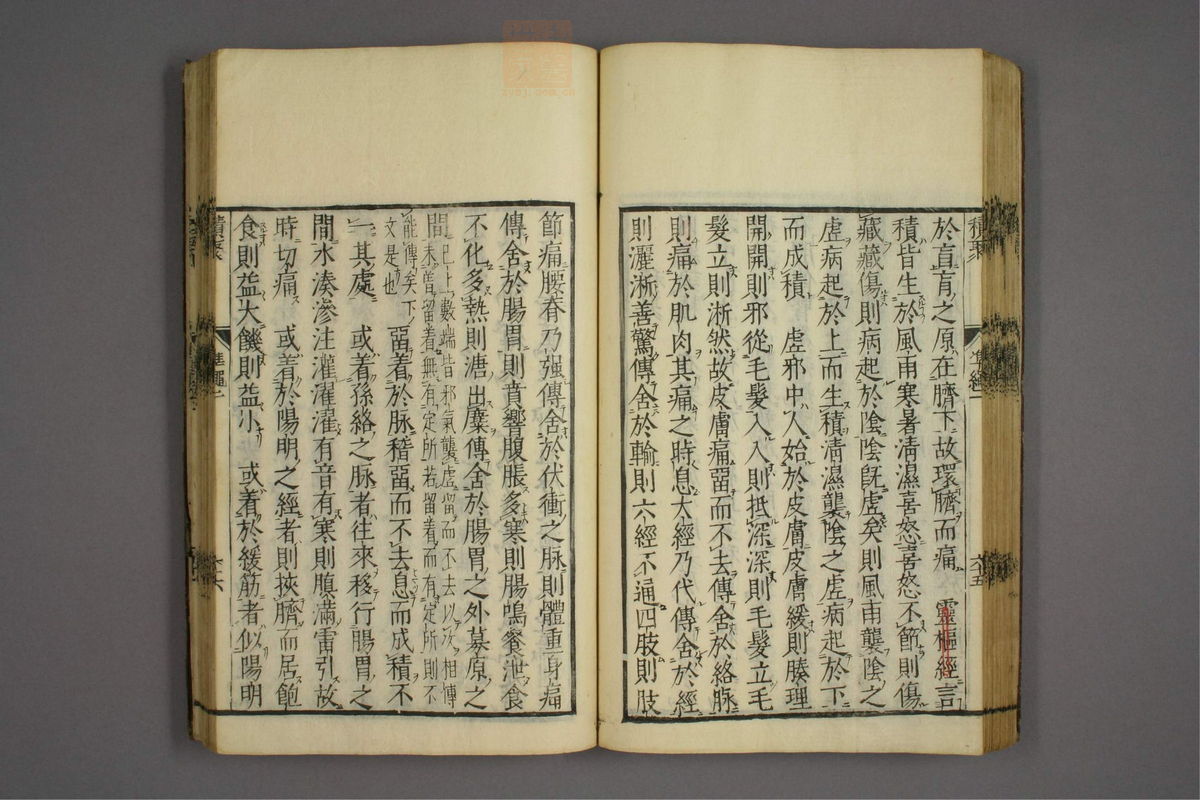 積聚
準繩一
六十五
於肓肓之原在臍下故環臍而痛　靈樞經言
積皆生於風雨寒暑清濕喜怒喜怒不節則傷
藏藏傷則病起於陰陰既虛矣則風雨襲陰之
虛病起於上而生積清濕襲陰之虛病起於下
而成積　虛邪中人始於皮膚皮膚緩則腠理
開開則邪從毛髮入入則抵深深則毛髮立毛
髮立則淅然故皮膚痛留而不去傳舍於絡脉
則痛於肌肉其痛之時息大經乃代傳舍於經
則灑淅善驚傳舍於輸則六經不通四肢則肢
節痛腰脊乃强傳舍於伏衝之脉則體重身痛
傳舍於腸胃則賁響腹脹多寒則腸鳴飱泄食
不化多熱則溏出麋傳舍於腸胃之外募原之
間已上數端皆邪氣襲虛留而不去以次相傳
未曾留着無有定所若留着而有定所則不
能傳矣下
文是也　留着於脉稽留而不去息而成積不
一其處　或着孫絡之脉者往來移行腸胃之
間水湊滲注灌濯濯有音有寒則䐜滿雷引故
時切痛　或着於陽明之經者則挾臍而居飽
食則益大饑則益小　或着於緩筋者似陽明
積聚
準繩一